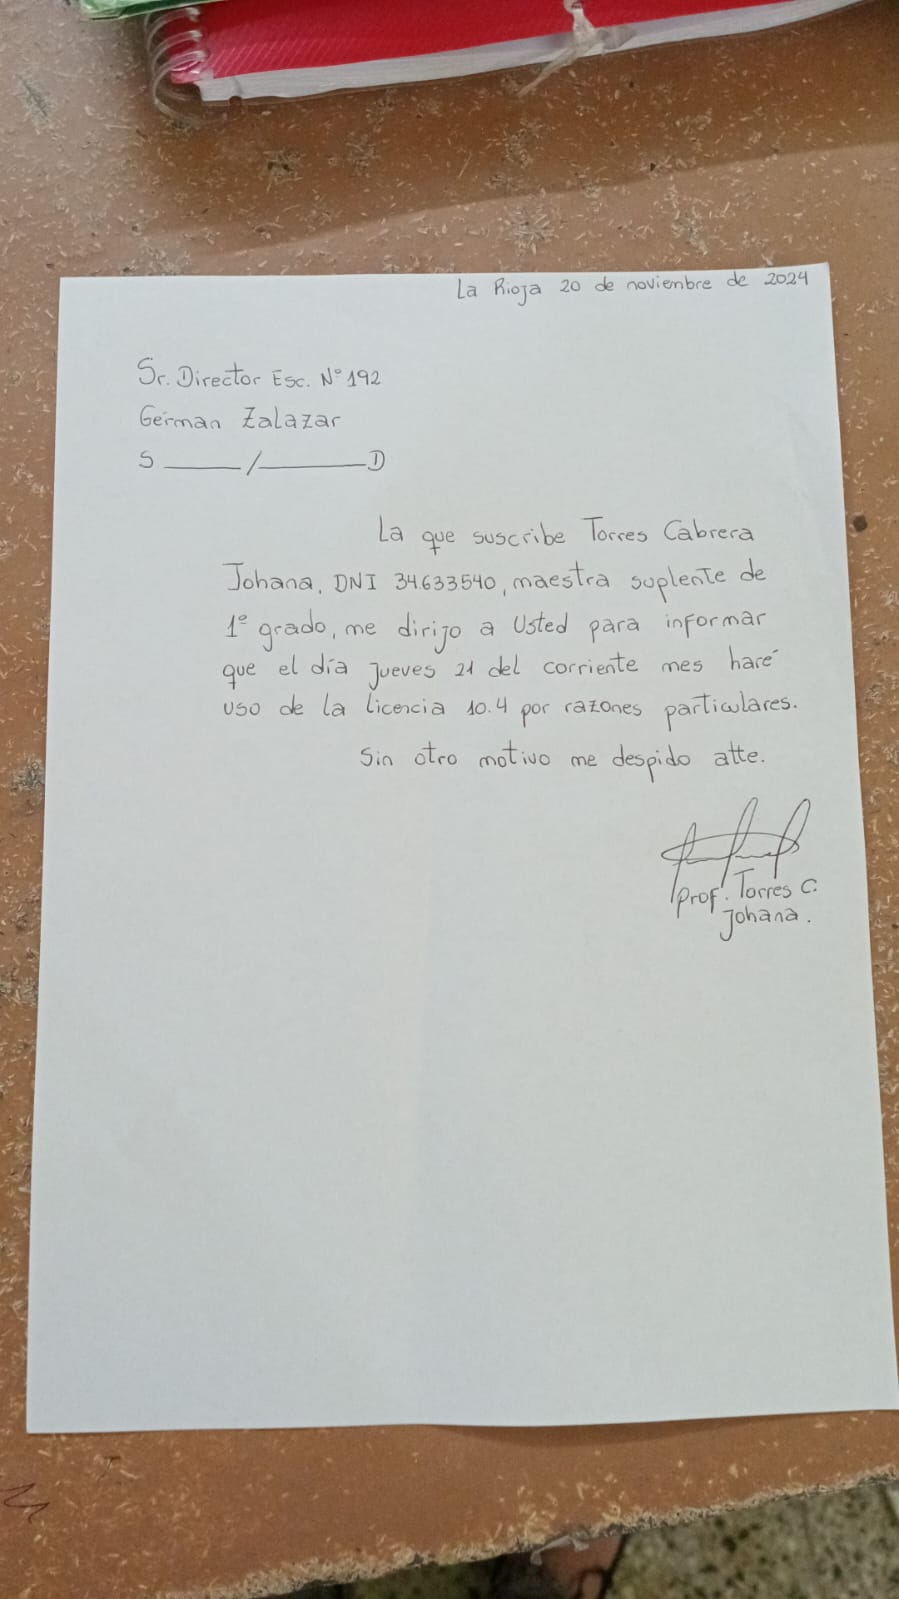 La Rioja 20 de noviembre de 2024
Sr. Director Esc. N° 192
German Zalazar
S ____/______D
La que suscribe Torres Cabrera
Johana, DNI 34633540, maestra suplente de
1° grado, me dirijo a Usted para informar
que el día jueves 21 del corriente mes haré
uso de la licencia 10.4 por razones particulares.
Sin otro motivo me despido atte.
Prof. Torres C.
Johana.